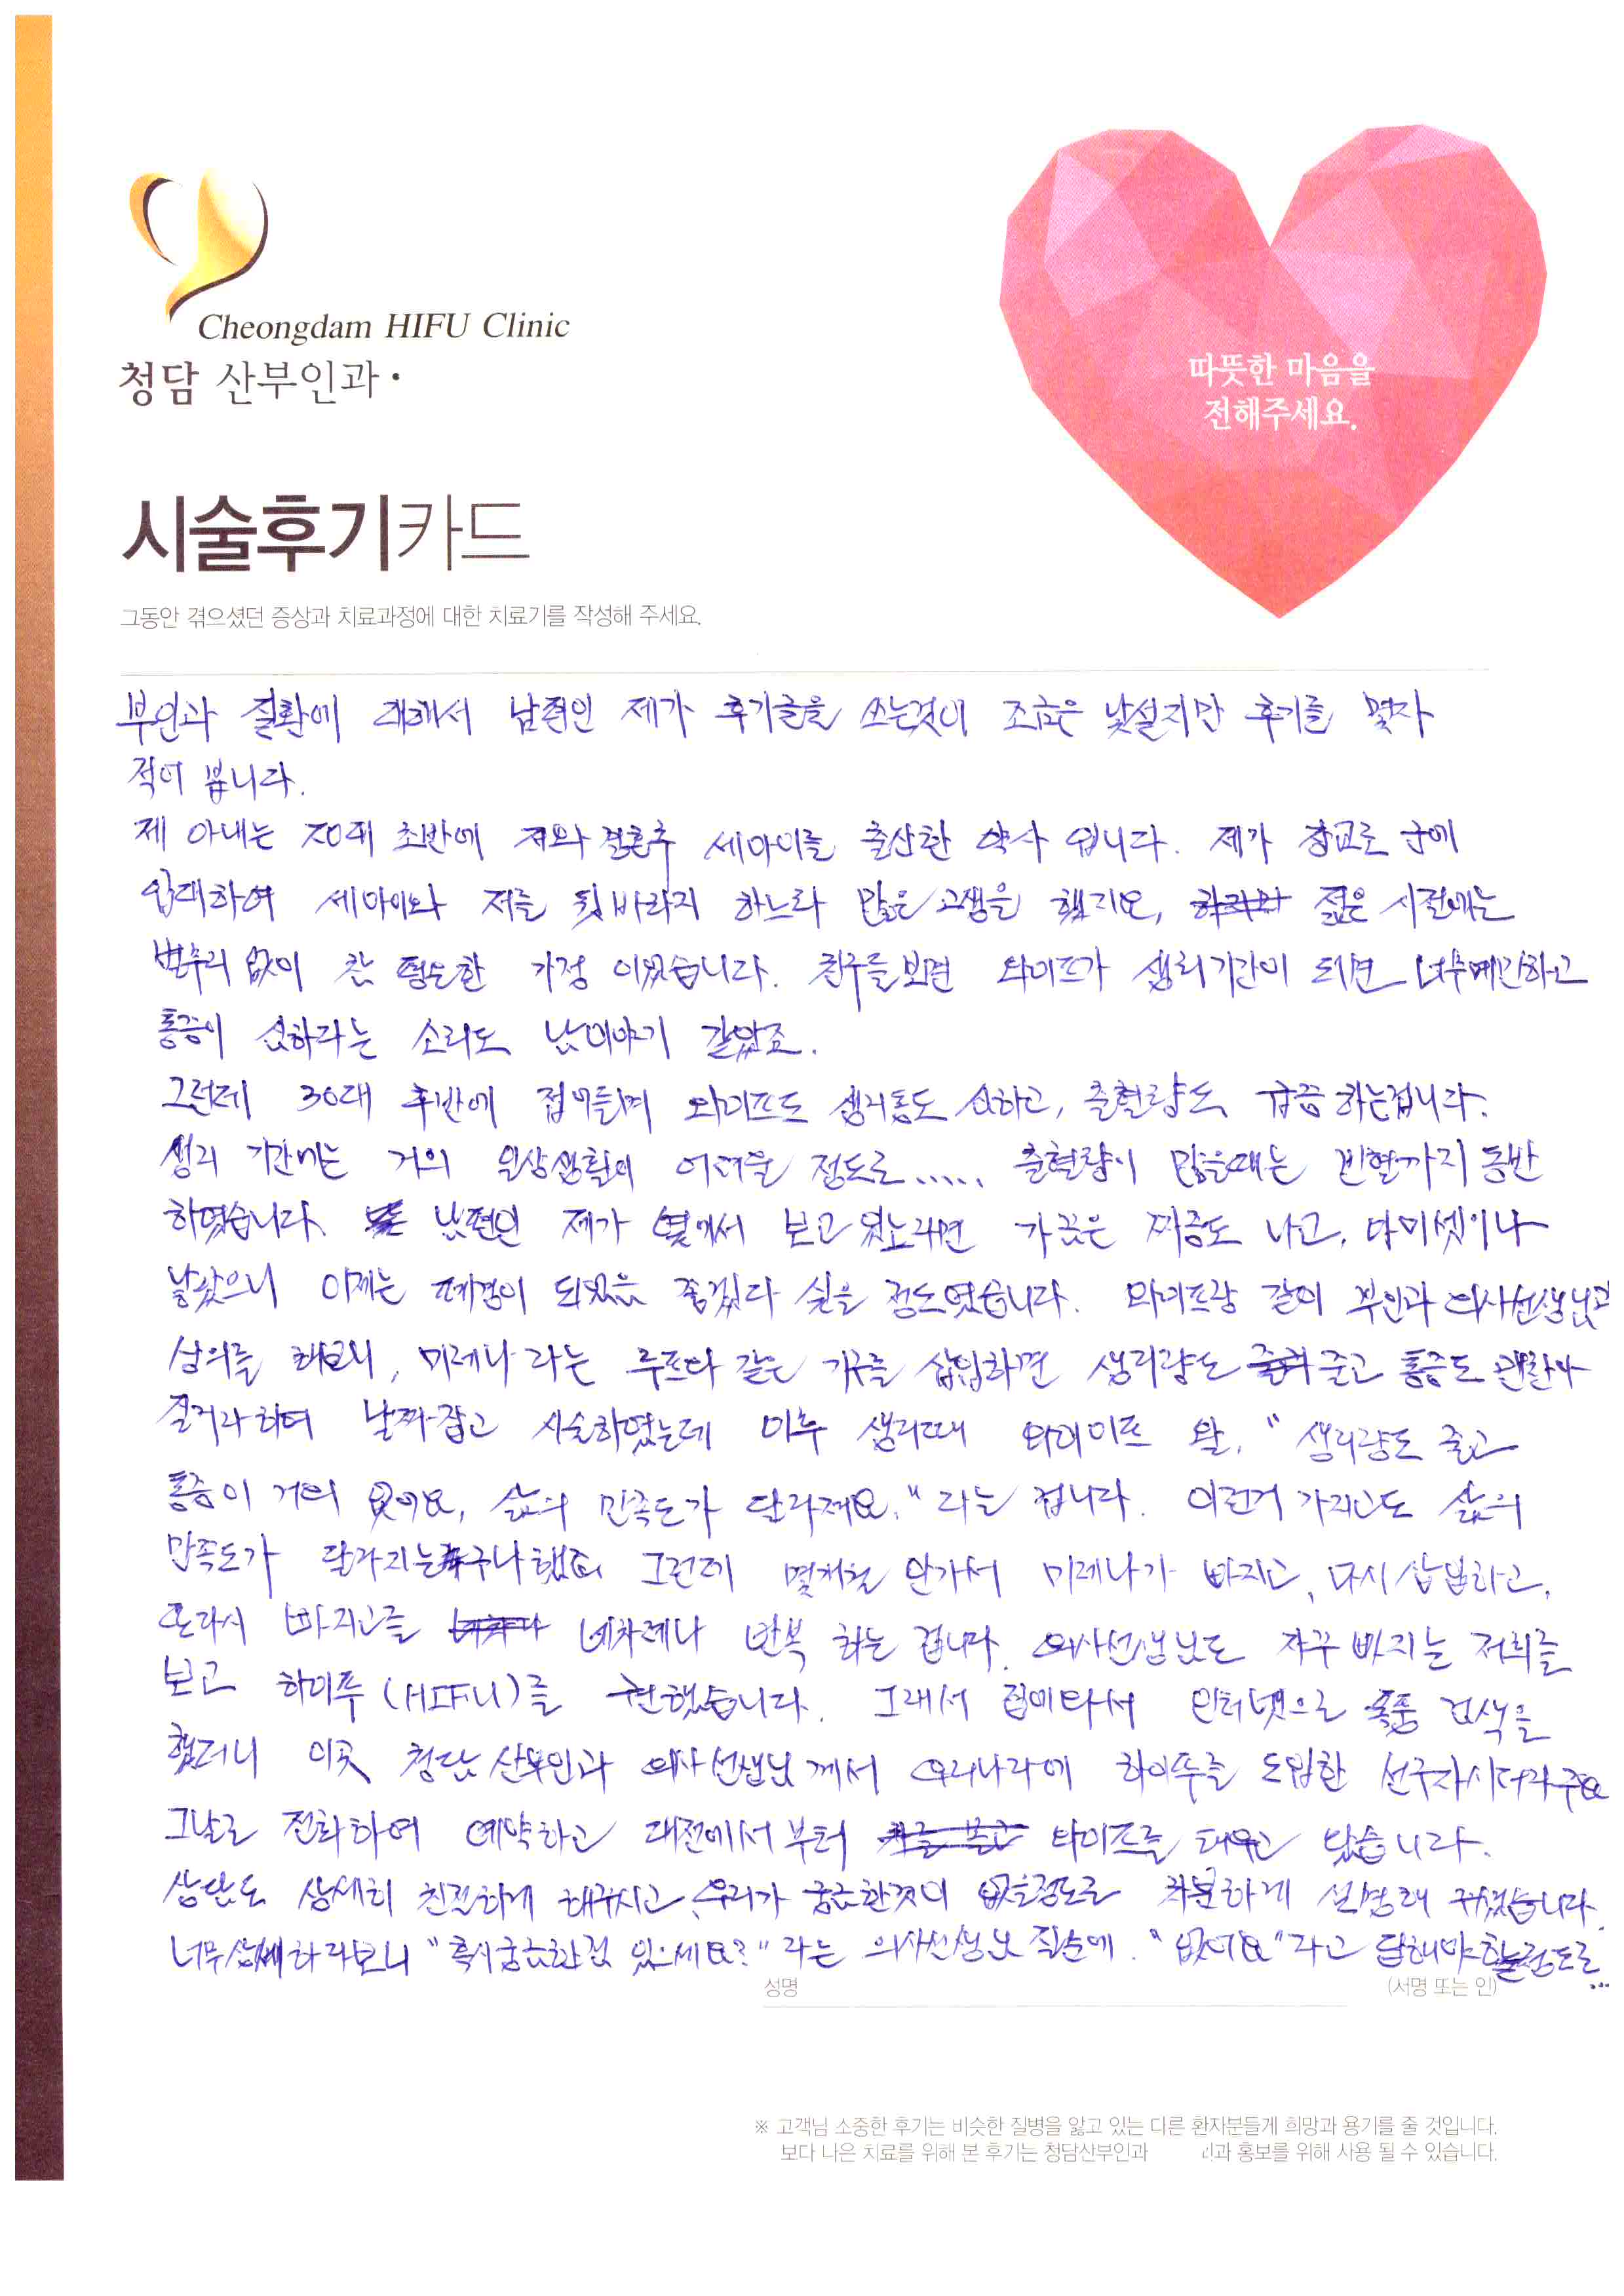 Cheongdam HIFU Clinic
청담 산부인과
따뜻한 마음을
전해주세요.
시술후기카드
그동안 겪으셨던 증상과 치료과정에 대한 치료기를 작성해 주세요.
부인과 질환에 대해서 남편인 제가 후기글을 쓰는것이 조금은 낯설지만 후기를 몇자
적어 봅니다.
제 아내는 20대 초반에 저와 결혼후 세아이를 출산한 약사 입니다. 제가 장교로 군에
입대하여 세아이와 저를 뒷바라지 하느라 많은 고생을 했지요, 젊은 시절에는
별추리 없이 참 평온한 가정 이었습니다. 친구를 보면 와이프가 생리기간이 되면 너무예민하고
통증이 심하라는 소리도 남이야기 같았죠.
그런데 30대 후반에 접어들며 와이프도 생리통도 심하고, 출혈량도 급증 하는겁니다.
생리 기간에는 거의 일상생활이 어려울 정도로..... 출혈량이 많을때는 빈혈까지 동반
하였습니다. 남편인 제가 옆에서 보고 있노라면 가끔은 짜증도 나고, 아이셋이나
낳았으니 이제는 폐경이 되었음 좋겠다 싶을 정도였습니다. 와이프랑 같이 부인과 의사선생님과
상의를 해보니, 미레나 라는 루프와 같은 기구를 삽입하면 생리량도 줄고 통증도 괜찮아
질거라 하여 날짜잡고 시술하였는데 이후 생리때 와이프 왈, "생리량도 줄고
통증이 거의 없어요, 삶의 만족도가 달라져요." 라는 겁니다. 이런거 가지고도 삶의
만족도가 달라지는구나 했죠. 그런데 몇개월 안가서 미레나가 빠지고, 다시 삽입하고,
또다시 빠지고를 네차례나 반복 하는 겁니다. 의사선생님도 자꾸 빠지는 저희를
보고 하이푸 (HIFU)를 권했습니다. 그래서 집에와서 인터넷으로 폭풍 검색을
했더니 이곳 청담 산부인과 의사선생님 께서 우리나라에 하이푸를 도입한 선구자시더라구요
그날로 전화하여 예약하고 대전에서 부터 와이프를 태우고 왔습니다.
상담도 상세히 친절하게 해주시고, 우리가 궁금한것이 없을정도로 차분하게 설명해 주셨습니다.
너무상세하다보니 "혹시궁금한것 있으세요?" 라는 의사선생님 질문에. "없어요"라고 답해야할정도로...
성명
(서명 또는 인)
※ 고객님 소중한 후기는 비슷한 질병을 앓고 있는 다른 환자분들게 희망과 용기를 줄 것입니다.
보다 나은 치료를 위해 본 후기는 청담산부인과 과 홍보를 위해 사용 될 수 있습니다.